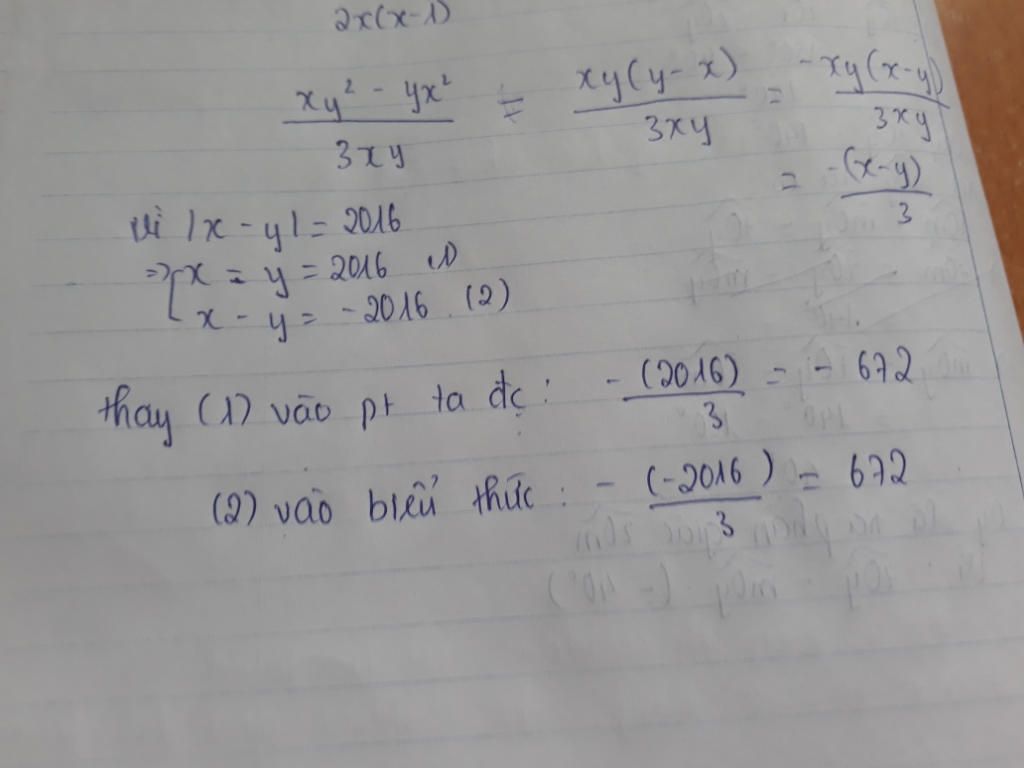 2x(x-1)
xy² - yx² / 3xy = xy(y-x) / 3xy = -xy(x-y) / 3xy
= -(x-y) / 3
Vì |x-y| = 2016
=> [ x = y = 2016 (1)
x - y = -2016 (2)
thay (1) vào pt ta đc: -(2016) / 3 = -672
(2) vào biểu thức: -(-2016) / 3 = 672